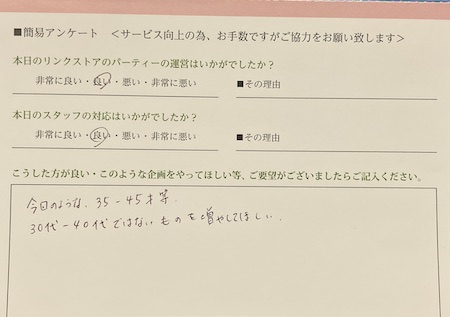 ■簡易アンケート ＜サービス向上の為、お手数ですがご協力をお願い致します＞
本日のリンクストアのパーティーの運営はいかがでしたか？
非常に良い・良い・悪い・非常に悪い ■その理由
本日のスタッフの対応はいかがでしたか？
非常に良い・良い・悪い・非常に悪い ■その理由
こうした方が良い・このような企画をやってほしい等、ご要望がございましたらご記入ください。
今回のような、35-45才等、
30代-40代ではないものを増やしてほしい。